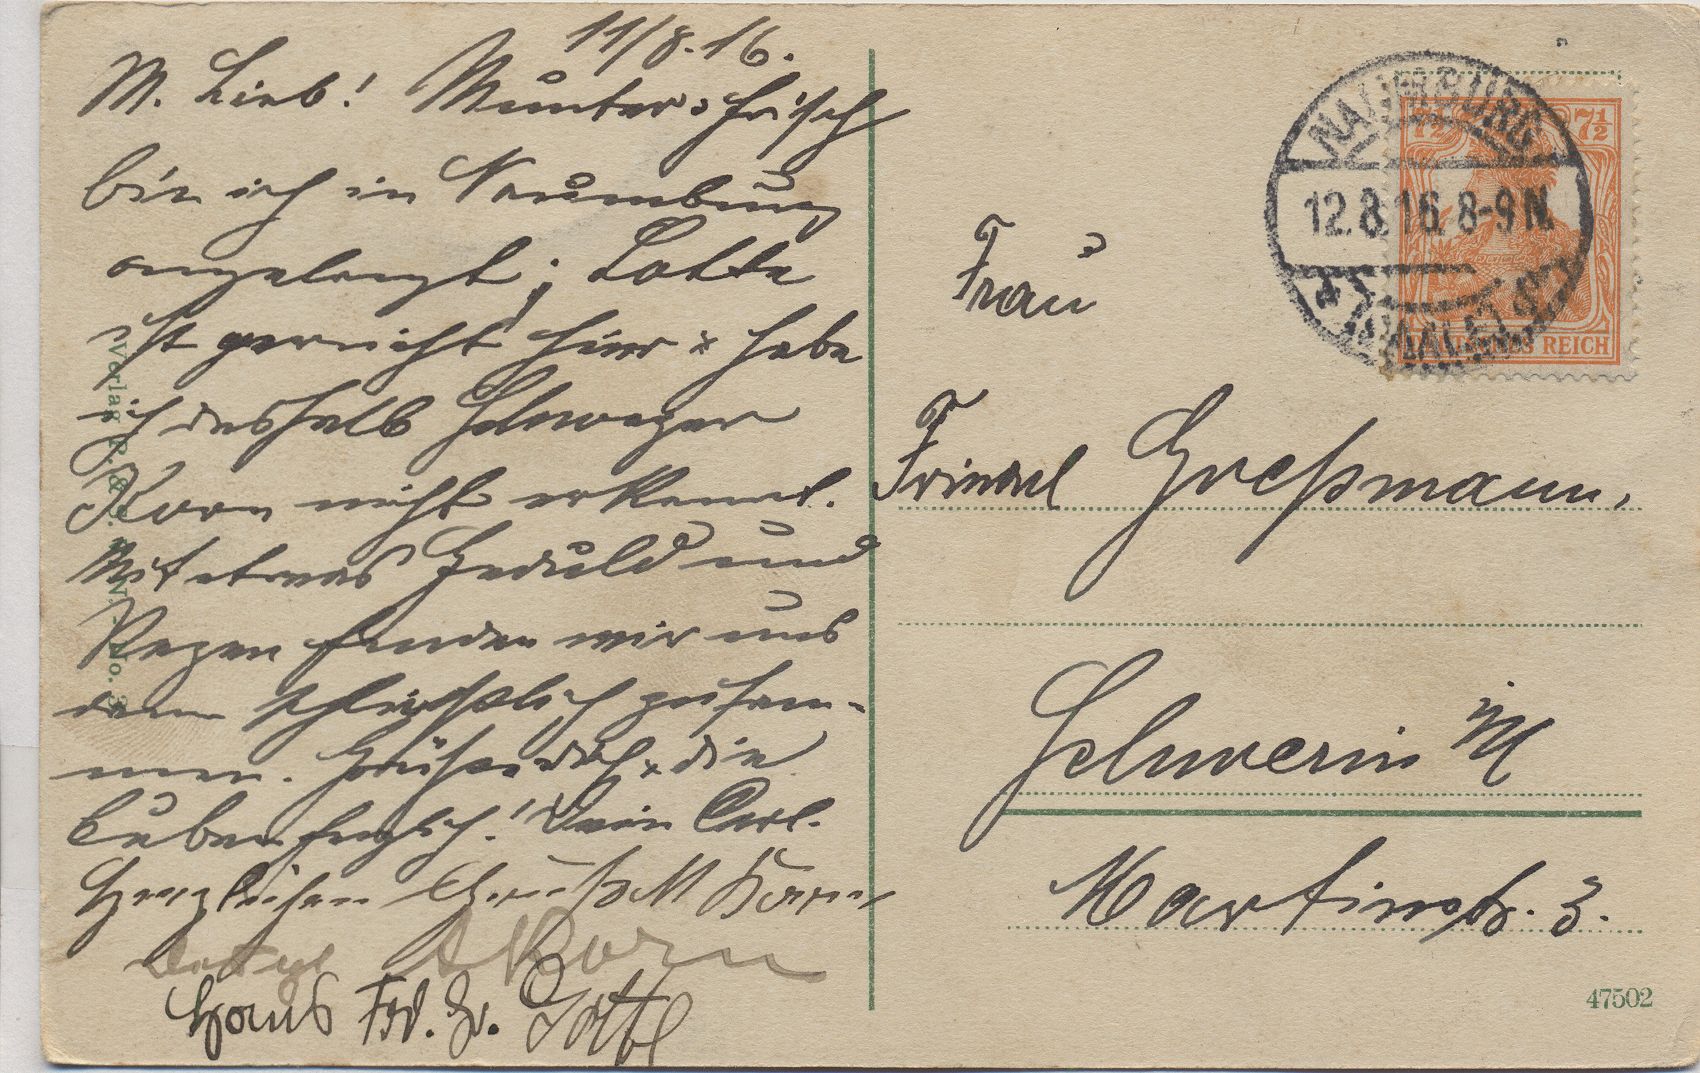 11/8.16.
M. Lieb! Munter u. frisch
bin ich in Naumburg
angelangt; Lotte
ist garnicht hier u. habe
ich deshalb Schwager
Korn nicht erkannt.
Mit etwas Geduld und
Regen fanden wir uns
dann schließlich zusam-
men. Grüße dich u. die
Buben herzlich! Dein Carl.
Herzlichen Gruß M Korn
AKorn
Hans Frd.
NAUMBURG
12.8.16. 8-9 N.
(SAALE)
7½ 7½
DEUTSCHES REICH
Frau
Greßmann,
Schwerin i/M
Martinstr. 3.
47502
Verlag